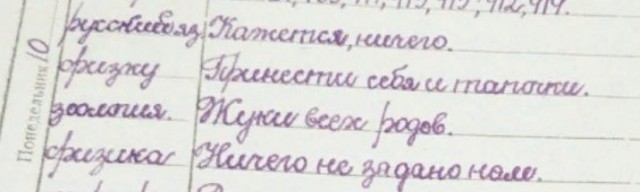 413, 415, 412, 414.
Понедельник 10
русский яз. Кажется, ничего.
физку Принести себя и тапочки.
зоология. Жуки всех родов.
физика Ничего не задано нам.